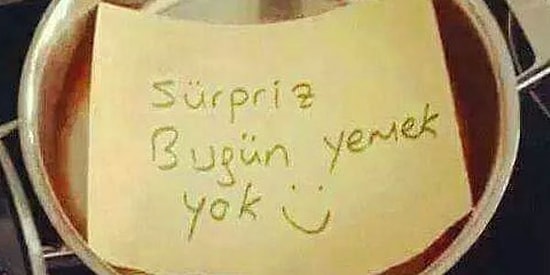 Sürpriz
Bugün yemek
yok :)